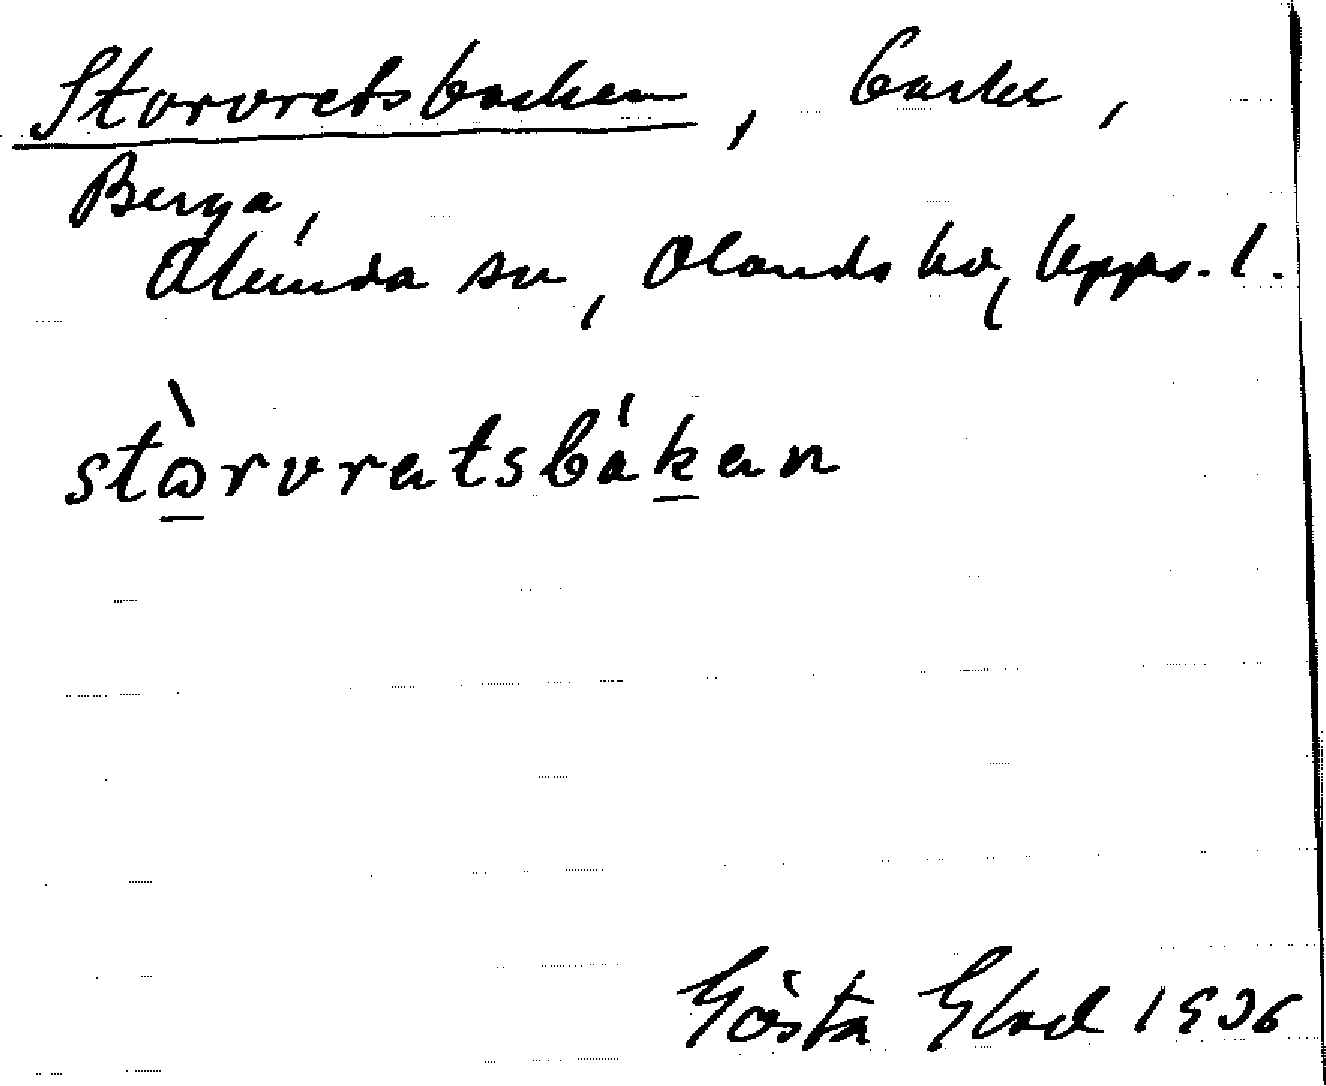 Storvretsbacken, backe,
Berga,
Alunda sn, Olands hd, Upps. l.
stɷ̀rvretsbákən
Gösta Glad 1936